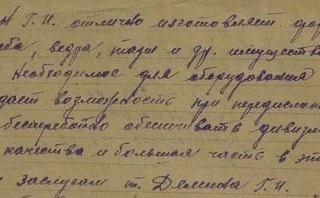 Г.И. отлично изготовляет фор
ба, ведра, тазы и др. имуществ
Необходимое для оборудования
дает возможность при передислок
бесперебойно обеспечивать дивизи
качества и большая часть в эт
заслугам т. Демнова Г.И.